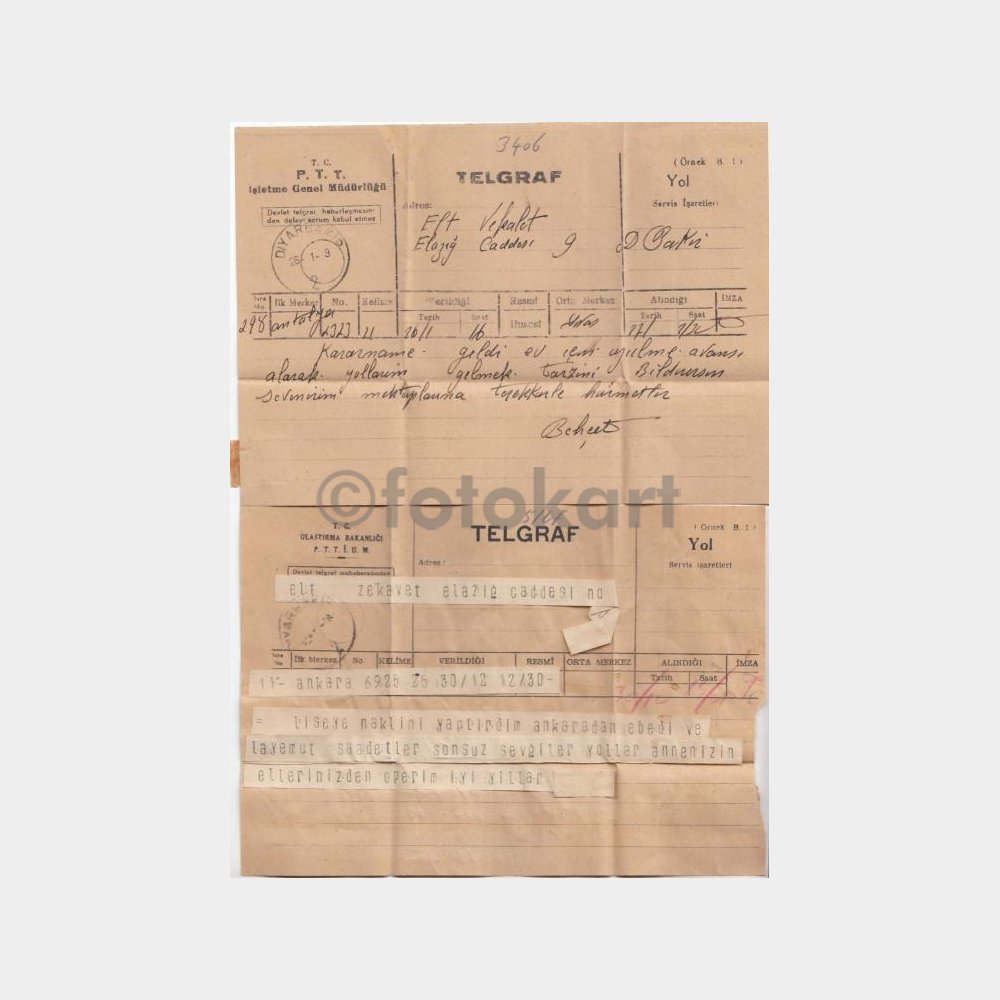 3406
T. C.
P. T. T.
İşletme Genel Müdürlüğü
TELGRAF
(Örnek B. 1)
Yol
Servis İşaretleri
Devlet telgraf haberleşmesin-
den dolayı sorum kabul etmez
Adres:
Elazığ Caddesi 9 D Bakır
DİYARBAKIR
26-1-9
2
İlk Merkez No. Kelime Verildiği Resmî Orta Merkez Alındığı İMZA
Tarih Saat Hususî Tarih Saat
298 antalya 21 26/1 16
Kararname geldi ev için avansı
alarak yollarım gelmek tarzını Bildirirsin
mektuplarına hürmetler
Behçet
©fotokart
T. C.
ULAŞTIRMA BAKANLIĞI
P. T. T. İ. U. M.
TELGRAF
(Örnek B. 1)
Yol
Servis işaretleri
Adres:
Devlet telgraf muhaberatından
elt zekavet elazığ caddesi no
İlk Merkez No KELİME VERİLDİĞİ RESMÎ ORTA MERKEZ ALINDIĞI İMZA
Tarih Saat
11- ankara 6925 25 30/12 12/30-
= liseye naklini yaptırdım ankaradan ebedi ve
layemut saadetler sonsuz sevgiler yollar annenizin
ellerinizden operim iyi yıllar